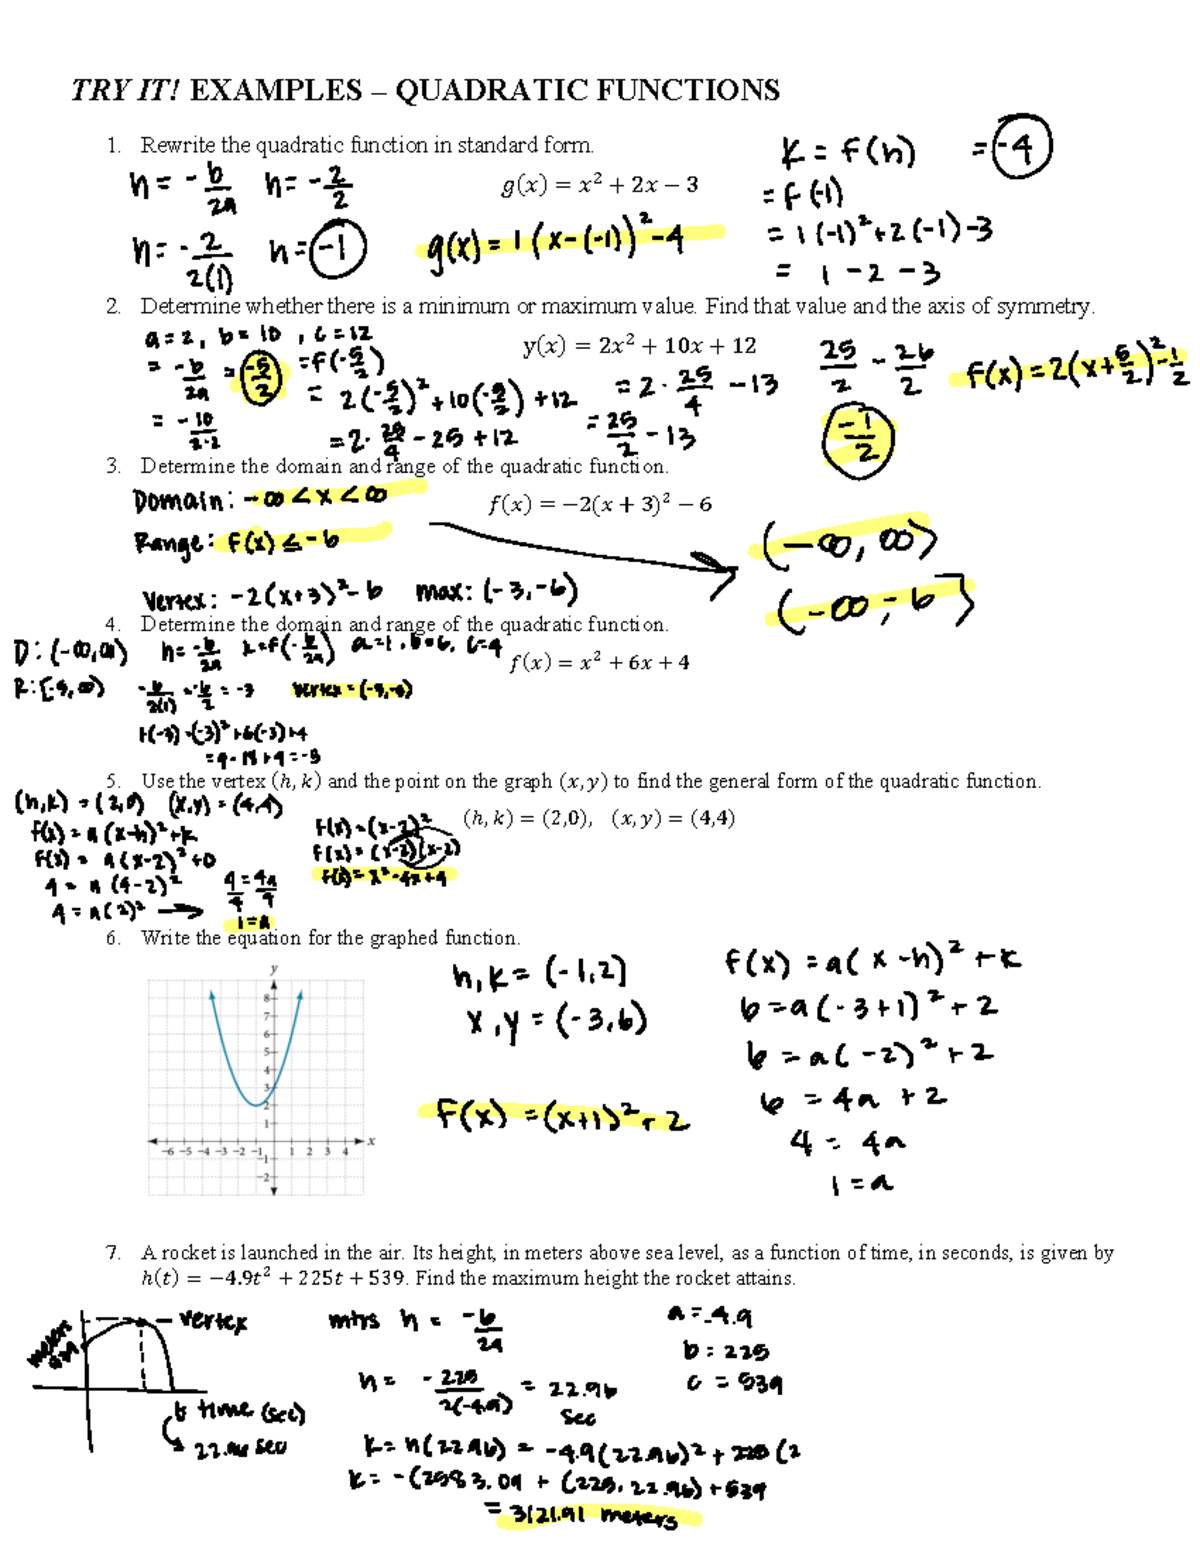 TRY IT! EXAMPLES – QUADRATIC FUNCTIONS
1. Rewrite the quadratic function in standard form.
g(x) = x² + 2x − 3
h = -b/2a h = -2/2
h = -2/2(1) h = -1
g(x) = 1(x-(-1))²-4
k = f(h) = -4
= f(-1)
= 1(-1)²+2(-1)-3
= 1-2-3
2. Determine whether there is a minimum or maximum value. Find that value and the axis of symmetry.
y(x) = 2x² + 10x + 12
a=2, b=10, c=12
= -b/2a = -5/2 = f(-5/2)
= -10/2·2
= 2(-5/2)²+10(-5/2)+12
= 2·25/4 - 25 + 12
= 2·25/4 - 13
= 25/2 - 13
25/2 - 26/2
-1/2
f(x) = 2(x+5/2)²-1/2
3. Determine the domain and range of the quadratic function.
f(x) = −2(x + 3)² − 6
Domain: -∞<x<∞
Range: f(x) ≤ -6
(-∞, ∞)
(-∞ - 6]
Vertex: -2(x+3)²-6 max: (-3,-6)
4. Determine the domain and range of the quadratic function.
f(x) = x² + 6x + 4
D: (-∞,∞) h = -b/2a k=f(-b/2a) a=1, b=6, c=4
R: [-5,∞) -6/2(1) = -6/2 = -3
=9-18+4=-5
5. Use the vertex (h, k) and the point on the graph (x, y) to find the general form of the quadratic function.
(h, k) = (2,0), (x, y) = (4,4)
(h,k) = (2,0) (x,y) = (4,4)
f(x) = a(x-h)²+k
f(x) = a(x-2)²+0
4 = a(4-2)²
4 = a(2)² →
4/4 = 4a/4
1=a
f(x)=(x-2)²
f(x)=(x-2)(x-2)
f(x)=x²-4x+4
6. Write the equation for the graphed function.
y
8
7
6
5
4
3
2
1
-6 -5 -4 -3 -2 -1 1 2 3 4 x
-1
-2
h,k = (-1,2]
x,y = (-3,6)
f(x) = (x+1)²+2
f(x) = a(x-h)²+k
6=a(-3+1)²+2
6=a(-2)²+2
6=4a+2
4=4a
1=a
7. A rocket is launched in the air. Its height, in meters above sea level, as a function of time, in seconds, is given by
h(t) = −4.9t² + 225t + 539. Find the maximum height the rocket attains.
vertex
time (sec)
22.96 sec
mtrs h = -b/2a
h = -225/2(-4.9) = 22.96 sec
a = -4.9
b = 225
c = 539
k = h(22.96) = -4.9(22.96)²+225(2
k = -(2583.09 + (225.22.96)+539
= 3121.91 meters